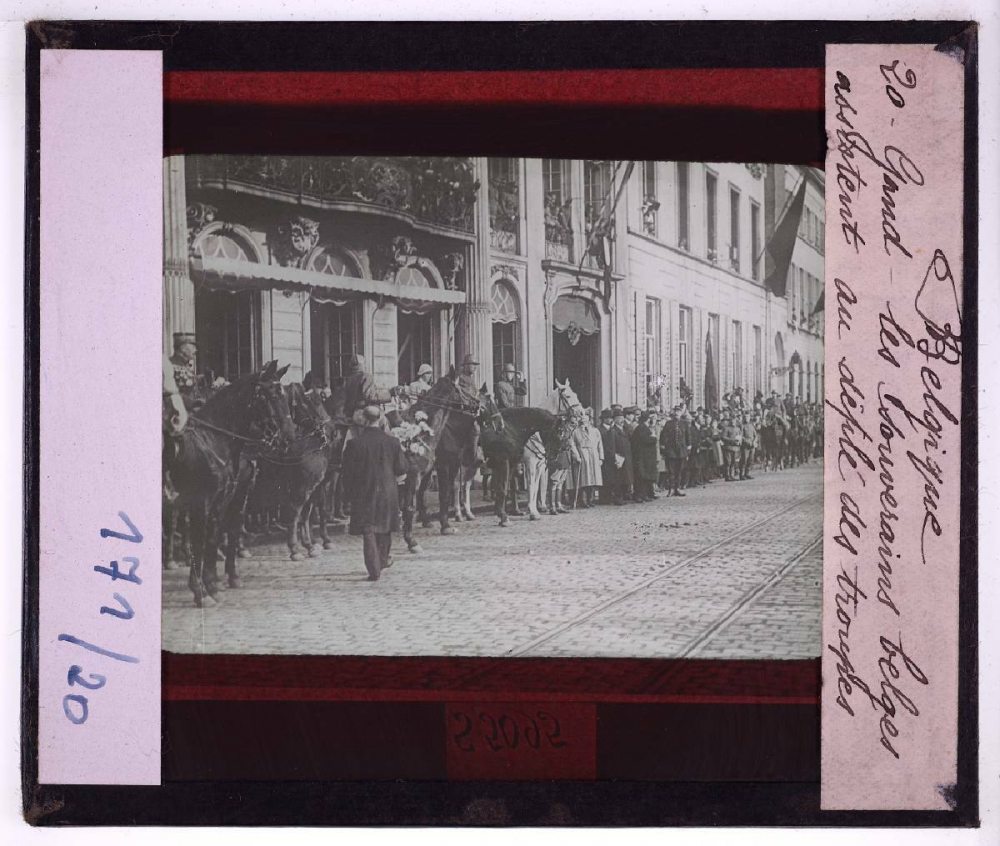 Belgique
20 - Gand - les Souverains belges
assistent au défilé des troupes
171/20
S 5095